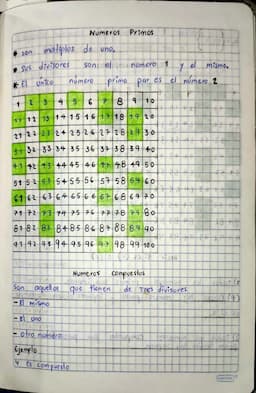 Numeros Primos
* son multiplos de uno.
* sus divisores son el numero 1 y el mismo.
* El único número primo par es el número 2
1 2 3 4 5 6 7 8 9 10
11 12 13 14 15 16 17 18 19 20
21 22 23 24 25 26 27 28 29 30
31 32 33 34 35 36 37 38 39 40
41 42 43 44 45 46 47 48 49 50
51 52 53 54 55 56 57 58 59 60
61 62 63 64 65 66 67 68 69 70
71 72 73 74 75 76 77 78 79 80
81 82 83 84 85 86 87 88 89 90
91 92 93 94 95 96 97 98 99 100
Numeros compuestos
son aquellos que tienen de tres divisores
- El mismo
- el uno
- otro numero
Ejemplo
4 es compuesto